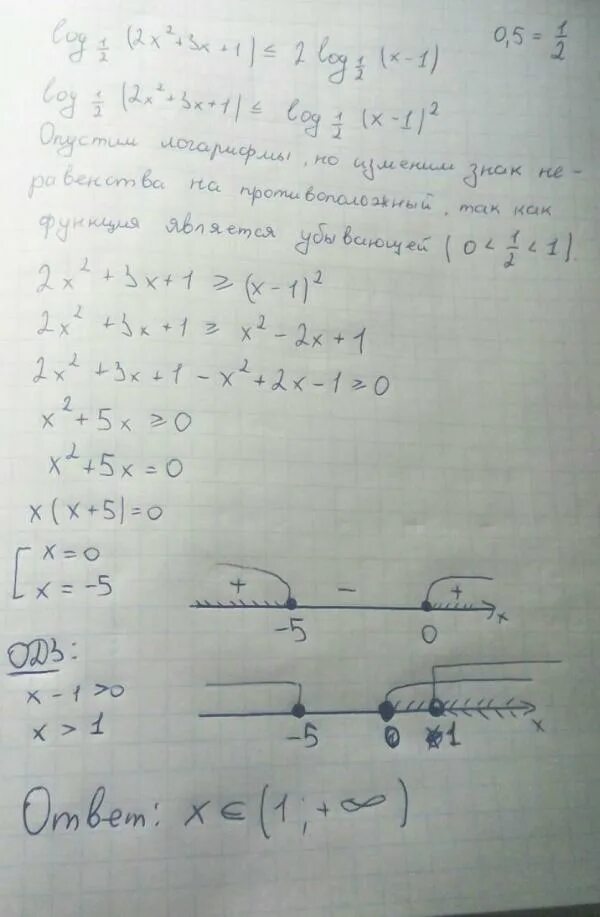 log 1/2 (2x² + 3x + 1) ≤ 2 log 1/2 (x - 1)
0,5 = 1/2
log 1/2 (2x² + 3x + 1) ≤ log 1/2 (x - 1)²
Опустим логарифмы, но изменим знак не-
равенства на противоположный, так как
функция является убывающей (0 < 1/2 < 1).
2x² + 3x + 1 ≥ (x - 1)²
2x² + 3x + 1 ≥ x² - 2x + 1
2x² + 3x + 1 - x² + 2x - 1 ≥ 0
x² + 5x ≥ 0
x² + 5x = 0
x(x + 5) = 0
[ x = 0
x = -5
+ - +
-5 0 x
ОДЗ:
x - 1 > 0
x > 1
-5 0 1 x
Ответ: x ∈ (1; +∞)